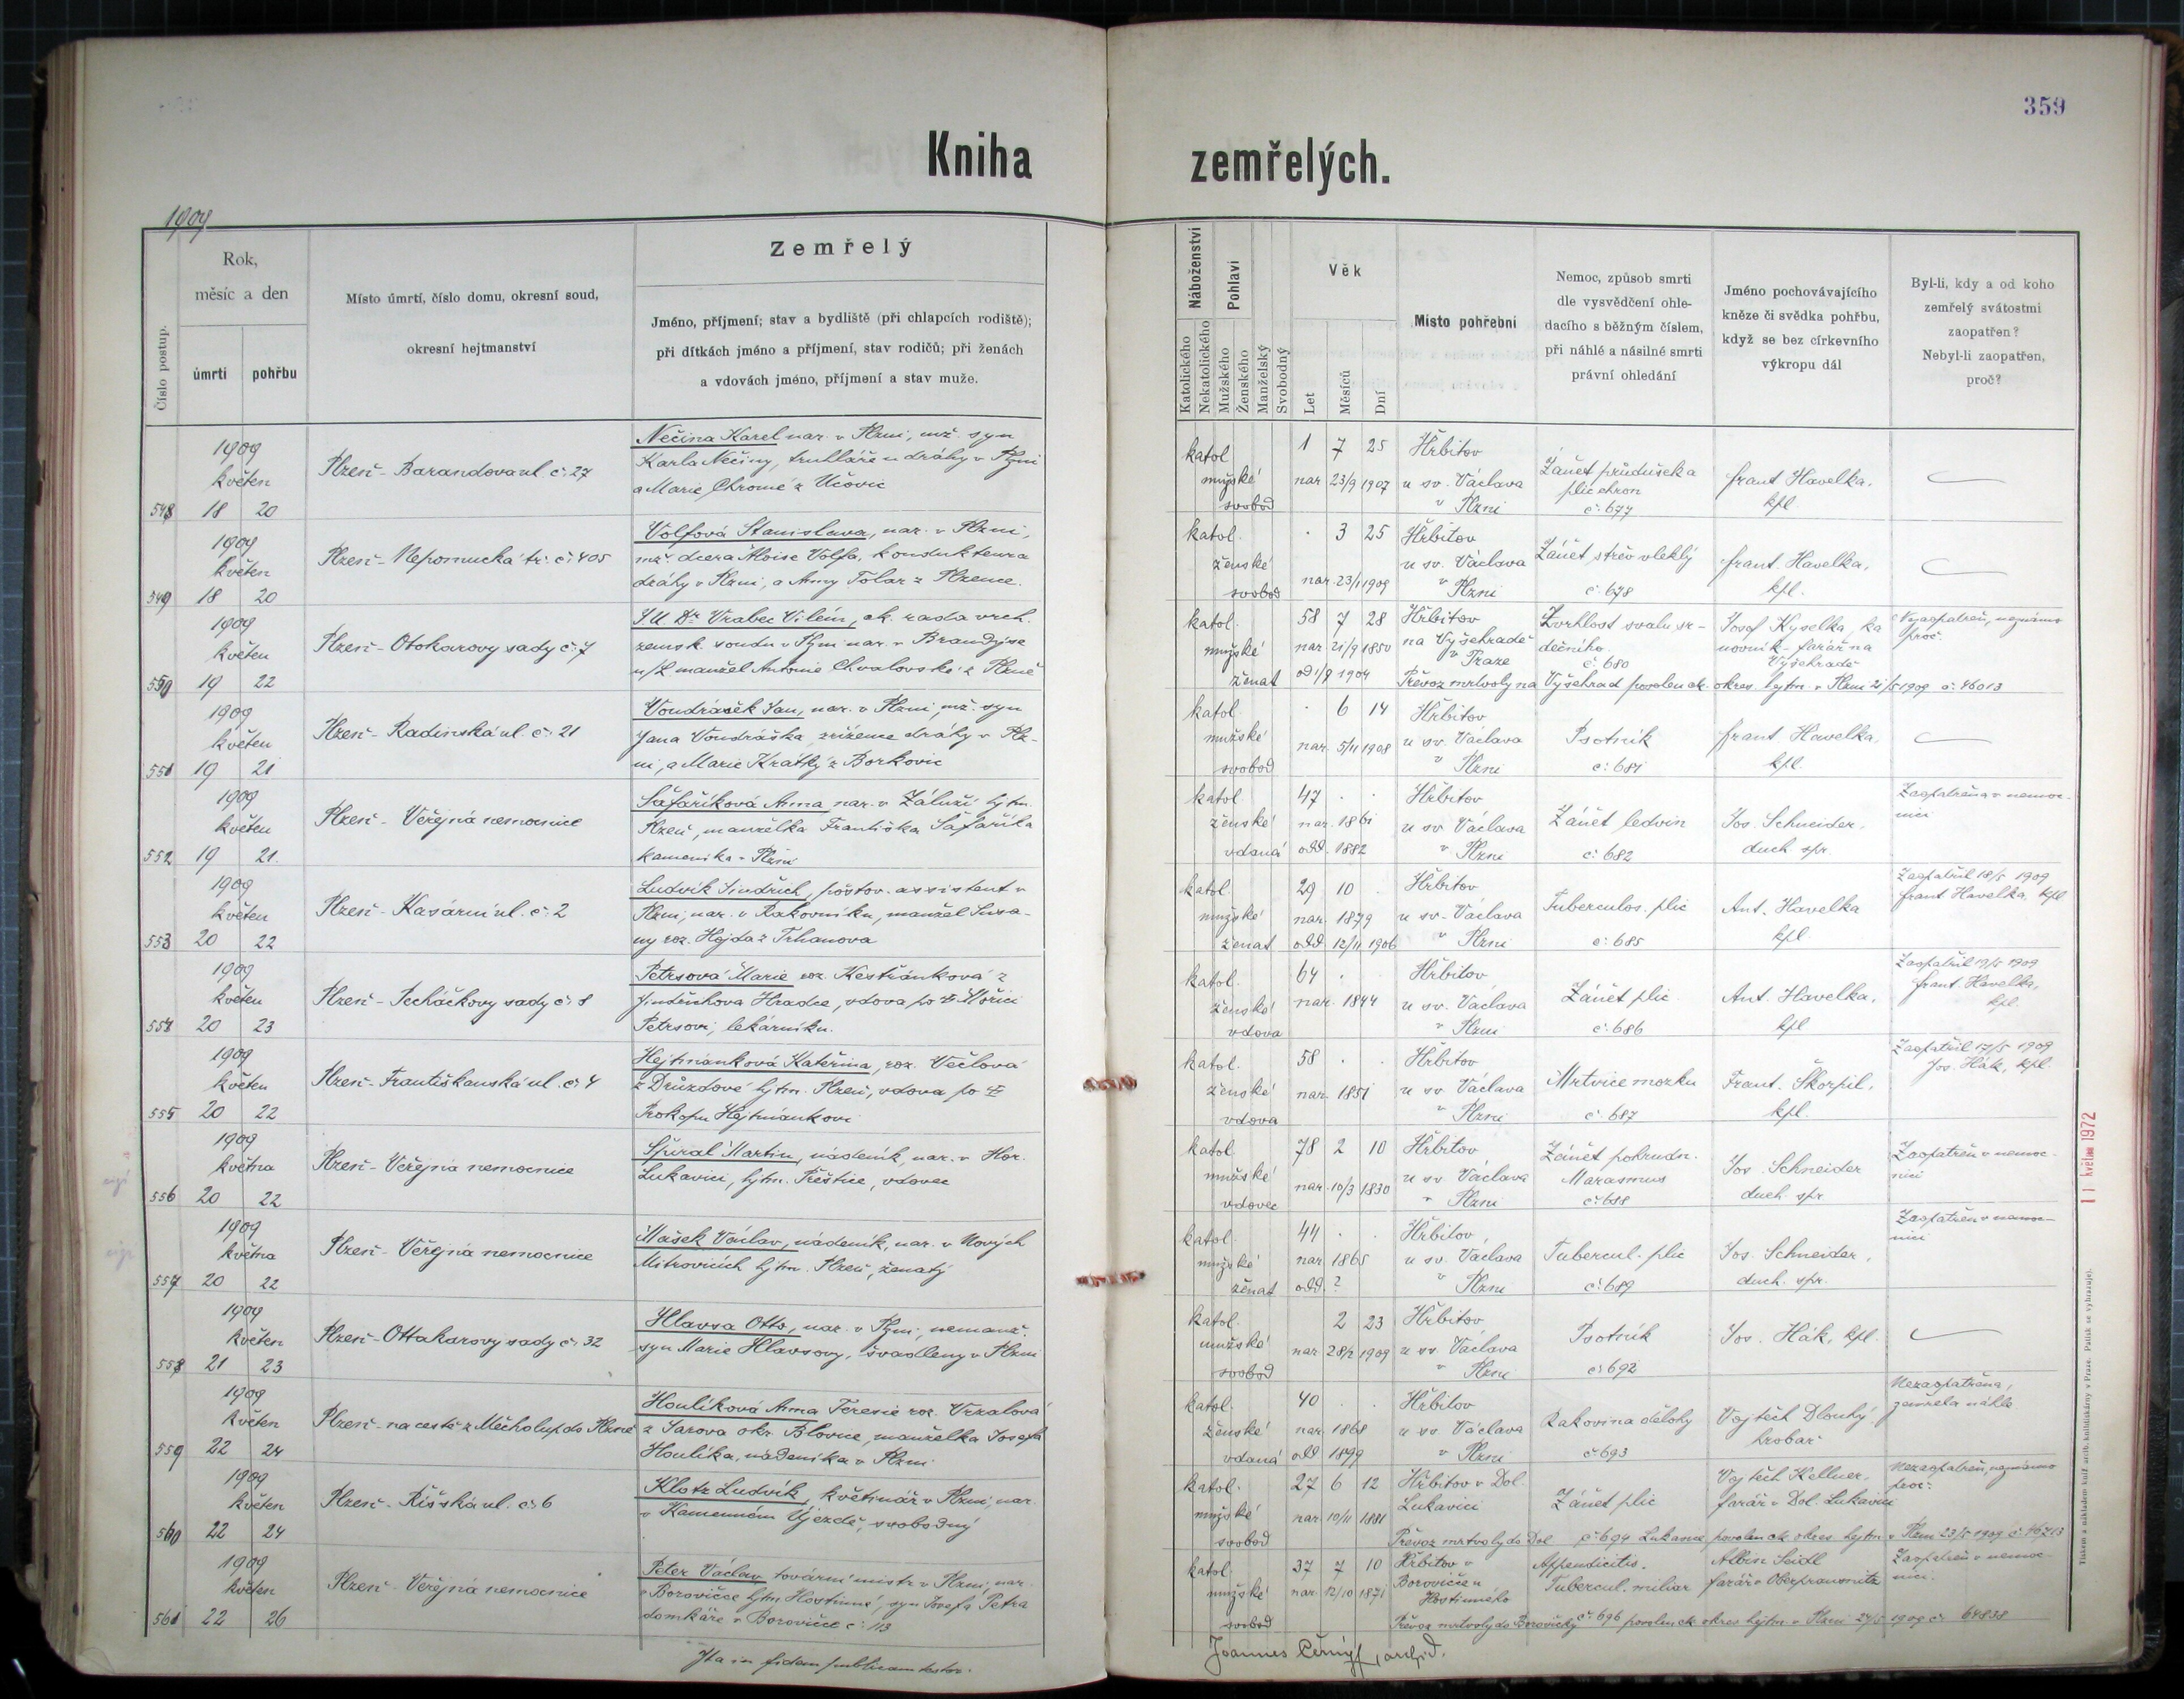 359
Kniha zemřelých.
1909
Číslo postup.
Rok,
měsíc a den
úmrtí
pohřbu
Místo úmrtí, číslo domu, okresní soud,
okresní hejtmanství
Zemřelý
Jméno, příjmení; stav a bydliště (při chlapcích rodiště);
při dítkách jméno a příjmení, stav rodičů; při ženách
a vdovách jméno, příjmení a stav muže.
Náboženství
Katolického
Nekatolického
Pohlaví
Mužského
Ženského
Manželský
Svobodný
Věk
Let
Měsíců
Dní
Místo pohřební
Nemoc, způsob smrti
dle vysvědčení ohle-
dacího s běžným číslem,
při náhlé a násilné smrti
právní ohledání
Jméno pochovávajícího
kněze či svědka pohřbu,
když se bez církevního
výkropu dál
Byl-li, kdy a od koho
zemřelý svátostmi
zaopatřen?
Nebyl-li zaopatřen,
proč?
548
1909
květen
18 20
Plzeň - Barandova ul. č. 27
Nečina Karel nar. v Plzni, mž. syn
Karla Nečiny, truhláře u dráhy v Plzni
a Marie Chromé z Účovic
katol
mužské
svobod
1 7 25
nar 23/9 1907
Hřbitov
u sv. Václava
v Plzni
Zánět průdušek a
plic chron
č. 677
frant Havelka,
kpl.
549
1909
květen
18 20
Plzeň - Nepomucká tř. č. 405
Volfová Stanislava, nar. v Plzni,
mž. dcera Aloise Volfa, kondukteura
dráhy v Plzni, a Anny Tolar z Plzence.
katol.
ženské
svobod
. 3 25
nar. 23/1 1909
Hřbitov
u sv. Václava
v Plzni
Zánět střev vleklý
č. 678
frant. Havelka,
kpl.
550
1909
květen
19 22
Plzeň - Otokarovy sady č. 7
JU Dr Vrabec Vilém, ck. rada vrch.
zemsk. soudu v Plzni nar. v Brandýse
n/L manžel Antonie Chvalovské z Plzně
katol.
mužské
ženat
58 7 28
nar 21/9 1850
od 1/9 1904
Hřbitov
na Vyšehradě
v Praze
Zvrhlost svalu sr-
dečního.
č. 680
Josef Kyselka, ka
novník - farář na
Vyšehradě
Nezaopatřen, neznámo
proč.
Převoz mrtvoly na Vyšehrad povolen ck. okres. hejtm. v Plzni 21/5 1909 č. 46013
551
1909
květen
19 21
Plzeň - Radinská ul. č. 21
Voudráček Jan, nar. v Plzni, mž. syn
Jana Voudráčka, zřízence dráhy v Plz-
ni, a Marie Krátký z Borkovic
katol.
mužské
svobod
. 6 14
nar. 5/11 1908
Hřbitov
u sv. Václava
v Plzni
Psotník
č. 681
frant Havelka,
kpl.
552
1909
květen
19 21.
Plzeň - Veřejná nemocnice
Šafaříková Anna nar. v Záluží hjtm.
Plzeň, manželka Františka Šafaříka
kameníka v Plzni
katol
ženské
vdaná
47 . .
nar. 1861
odd. 1882
Hřbitov
u sv. Václava
v Plzni
Zánět ledvin
č. 682
Jos. Schneider,
duch. spr.
Zaopatřena v nemoc-
nici
553
1909
květen
20 22
Plzeň - Kasární ul. č. 2
Ludvík Jindřich, poštov. assistent v
Plzni, nar. v Rakovníku, manžel Susa-
ny roz. Hejda z Trhanova
katol.
mužské
ženat
29 10 .
nar. 1879
odd 12/11 1906
Hřbitov
u sv. Václava
v Plzni
Tuberculos. plic
č. 685
Ant. Havelka
kpl.
Zaopatřil 18/5 1909
frant Havelka, kpl
554
1909
květen
20 23
Plzeň - Pecháčkovy sady č. 8
Petrsová Marie roz. Kestřánková z
Jindřichova Hradce, vdova po † Mořici
Petrsovi, lékárníku.
katol.
ženské
vdova
64 .
nar. 1844
Hřbitov
u sv. Václava
v Plzni
Zánět plic
č. 686
Ant. Havelka,
kpl
Zaopatřil 19/5 1909
frant. Havelka,
kpl.
555
1909
květen
20 22
Plzeň - Františkanská ul. č. 4
Hejtmánková Kateřina, roz. Večlová
z Druzdové hjtm. Plzeň, vdova po †
Prokopu Hejtmánkovi
katol.
ženské
vdova
58 . .
nar. 1851
Hřbitov
u sv. Václava
v Plzni
Mrtvice mozku
č. 687
Frant. Škorpil,
kpl.
Zaopatřil 17/5 1909
Jos. Hák, kpl.
556
1909
května
20 22
Plzeň - Veřejná nemocnice
Špiral Martin, nádeník, nar. v Hor.
Lukavici, hjtm. Přeštice, vdovec
katol
mužské
vdovec
78 2 10
nar. 10/3 1830
Hřbitov
u sv. Václava
v Plzni
Zánět pohrudn.
Marasmus
č. 688
Jos. Schneider
duch. spr.
Zaopatřen v nemoc-
nici
557
1909
května
20 22
Plzeň - Veřejná nemocnice
Mašek Václav, nádeník, nar. v Nových
Mitrovicích hjtm. Plzeň, ženatý
katol.
mužské
ženat
44 . .
nar 1865
odd. ?
Hřbitov
u sv. Václava
v Plzni
Tubercul. plic
č. 689
Jos. Schneider,
duch. spr.
Zaopatřen v nemoc-
nici
558
1909
květen
21 23
Plzeň - Ottakarovy sady č. 32
Hlavsa Otto, nar. v Plzni, nemanž.
syn Marie Hlavsovy, švadleny v Plzni
katol.
mužské
svobod
2 23
nar. 28/2 1909
Hřbitov
u sv. Václava
v Plzni
Psotník
č. 692
Jos. Hák, kpl.
559
1909
květen
22 24
Plzeň - na cestě z Měcholup do Plzně
Houlíková Anna Terezie roz. Vrzalová
z Žarova okr. Blovice, manželka Josefa
Houlíka, nádeníka v Plzni
katol.
ženské
vdaná
40 . .
nar. 1868
odd. 1899
Hřbitov
u sv. Václava
v Plzni
Rakovina dělohy
č. 693
Vojtěch Dlouhý
hrobař
Nezaopatřena,
zemřela náhle.
560
1909
květen
22 24
Plzeň - Říšská ul. č. 6
Klotz Ludvík, květinář v Plzni, nar.
v Kamenném Újezdě, svobodný
katol.
mužské
svobod
27 6 12
nar. 10/11 1881
Hřbitov v Dol.
Lukavici
Zánět plic
Vojtěch Kellner,
farář v Dol. Lukavici
Nezaopatřen, neznámo
proč.
Převoz mrtvoly do Dol č. 694 Lukavice povolen ck. okres. hejtm. v Plzni 23/5 1909 č. 46713
561
1909
květen
22 26
Plzeň - Veřejná nemocnice
Peter Václav tovární mistr v Plzni, nar.
v Borovičce hjtm Hostinné, syn Josefa Petra
domkáře v Borovičce č. 113
katol.
mužské
svobod
37 7 10
nar. 12/10 1871
Hřbitov v
Borovičce u
Hostinného
Appendicitis.
Tubercul. miliar
Albin Seidl
farář v Oberprausnitz
Zaopatřen v nemoc-
nici.
Převoz mrtvoly do Borovičky č. 696 povolen ck okres hejtm. v Plzni 24/5 1909 č. 64838
Ita in fidem publicam testor.
Joannes Černý, archid.
11 května 1972
Tiskem a nákladem kníž. arcib. knihtiskárny v Praze. Patisk se vyhrazuje.